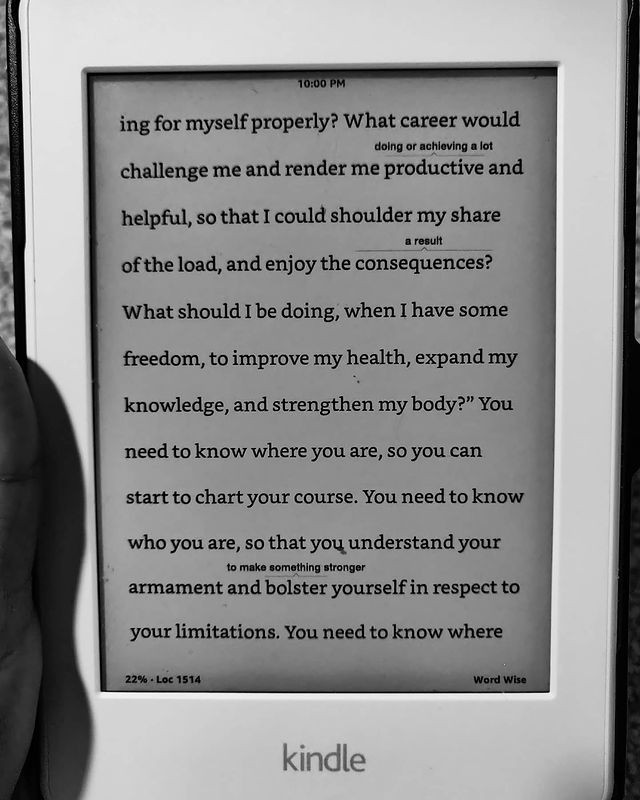 10:00 PM
ing for myself properly? What career would
doing or achieving a lot
challenge me and render me productive and
helpful, so that I could shoulder my share
a result
of the load, and enjoy the consequences?
What should I be doing, when I have some
freedom, to improve my health, expand my
knowledge, and strengthen my body?” You
need to know where you are, so you can
start to chart your course. You need to know
who you are, so that you understand your
to make something stronger
armament and bolster yourself in respect to
your limitations. You need to know where
22% · Loc 1514 Word Wise
kindle